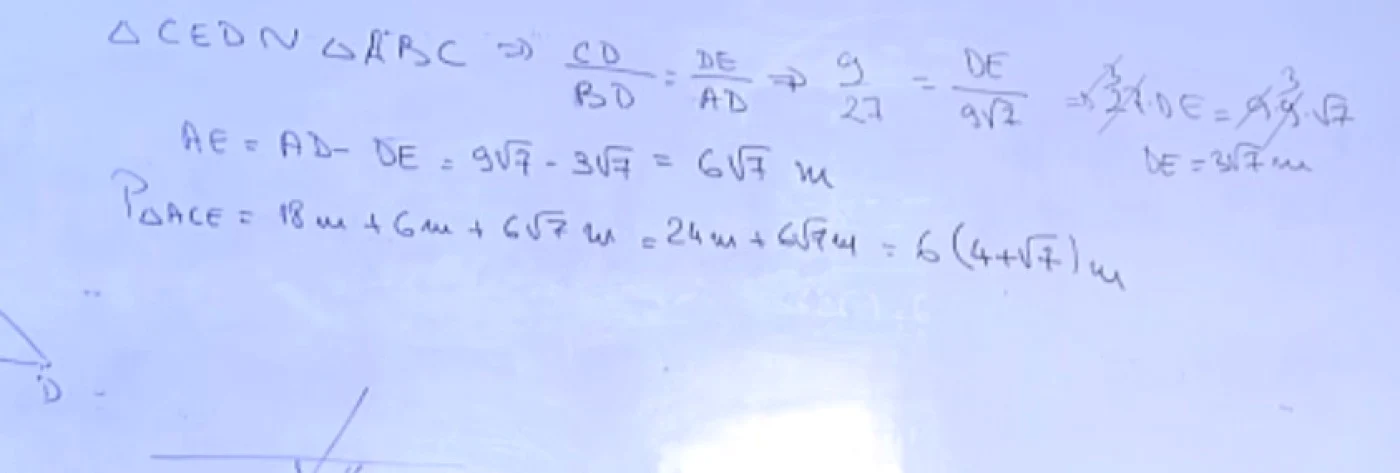 △CED ~ △ABC ⇒ CD/BD = DE/AD ⇒ 9/27 = DE/9√7 ⇒ 27·DE = 9·9·√7
3 3
DE = 3√7 m
AE = AD - DE = 9√7 - 3√7 = 6√7 m
P△ACE = 18m + 6m + 6√7 m = 24m + 6√7m = 6(4+√7)m
D